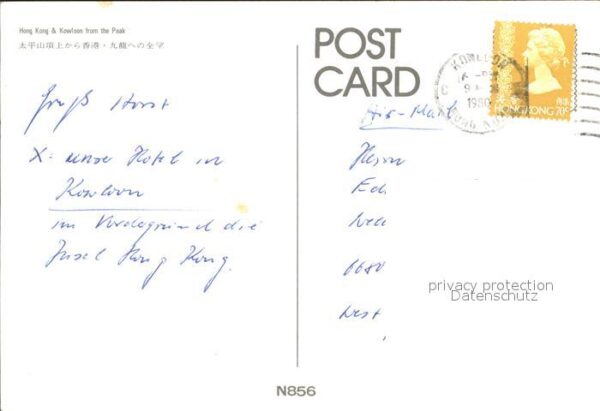 Hong Kong & Kowloon from the Peak
太平山頂上から香港・九龍への全望
Gruß Horst
X = unser Hotel in
Kowloon
im Vordergrund die
Insel Hong Kong.
POST
CARD
Air-Mail
KOWLOON
1980
HONG KONG
香港
HONG KONG 70¢
Herrn
6680
West
privacy protection
Datenschutz
N856